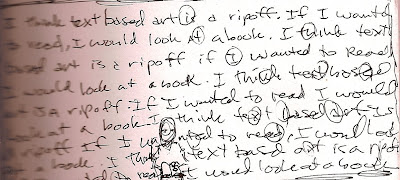 I think text based art is a ripoff. If I wanted
to read, I would look at a book. I think text
based art is a ripoff if I wanted to read
I would look at a book. I think text based
art is a ripoff. If I wanted to read I would
look at a book I think text based art is
ripoff If I wanted to read, I would look
at a book. I think text based art is a ripoff
to read I would look at a book